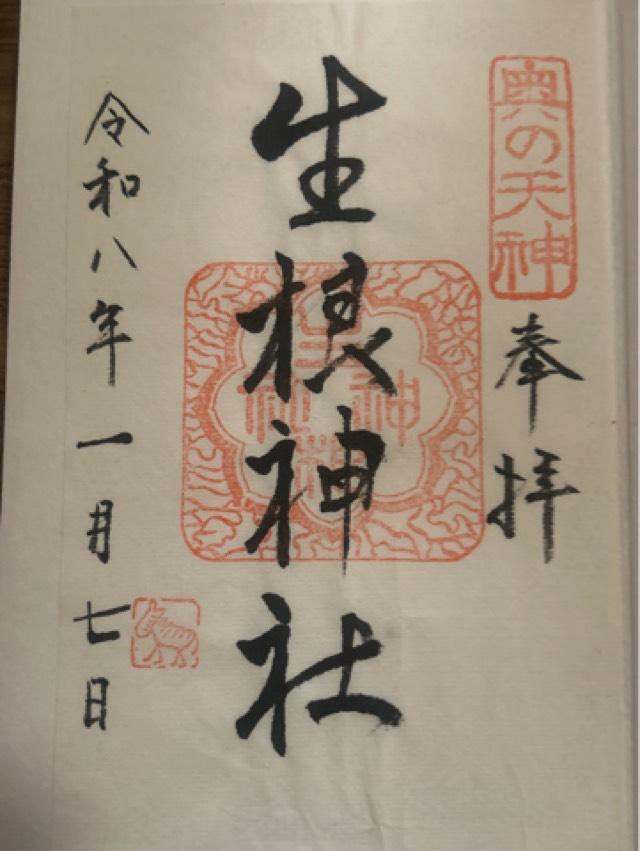 奥の天神
奉拝
生根神社
令和八年一月七日